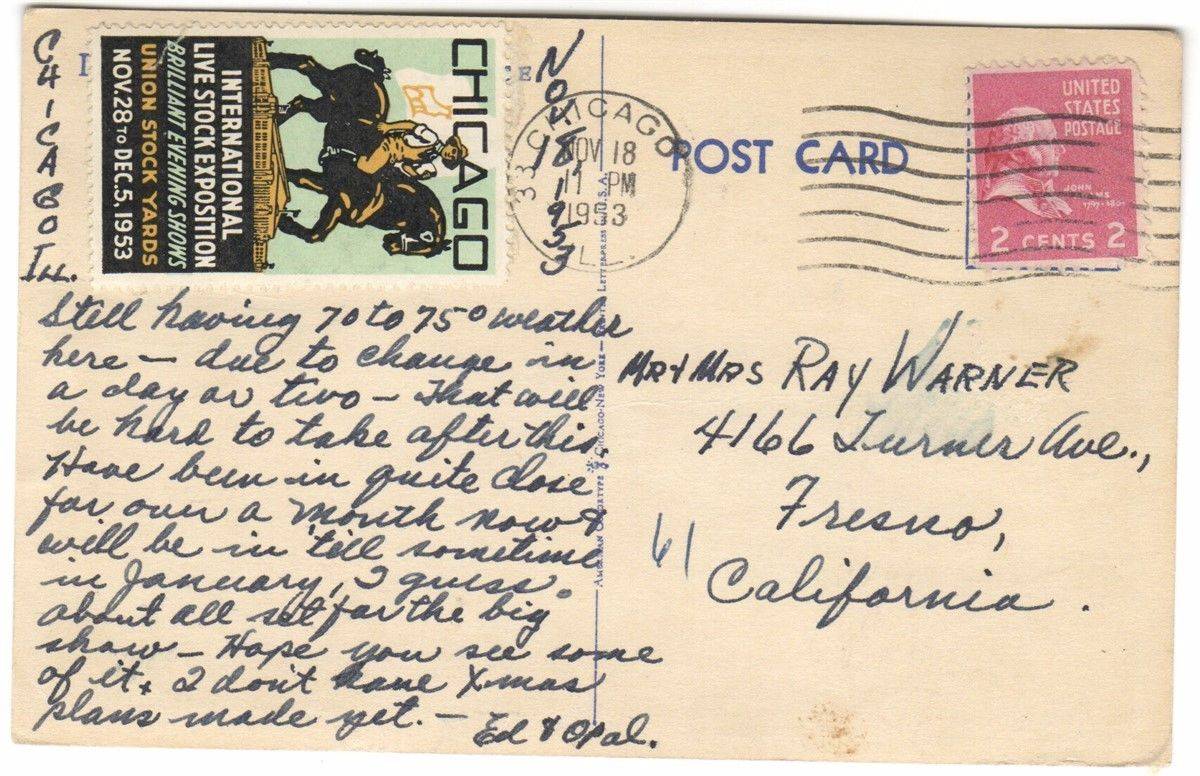 CHICAGO
ILL.
CHICAGO
INTERNATIONAL
LIVE STOCK EXPOSITION
BRILLIANT EVENING SHOWS
UNION STOCK YARDS
NOV. 28 TO DEC. 5, 1953
NOV 18 1953
CHICAGO
33
NOV 18
11 PM
1953
ILL.
POST CARD
UNITED
STATES
POSTAGE
JOHN
2 CENTS 2
Still having 70 to 75° weather
here — due to change in
a day or two — That will
be hard to take after this.
Have been in quite close
for over a month now &
will be in 'till sometime
in January, I guess.
about all set for the big
show — Hope you see some
of it. I don't have Xmas
plans made yet. —
Ed & Opal.
Mr & Mrs RAY WARNER
4166 Turner Ave.,
Fresno,
California.
61
CHICAGO-NEW YORK
LETTERPRESS IN U.S.A.